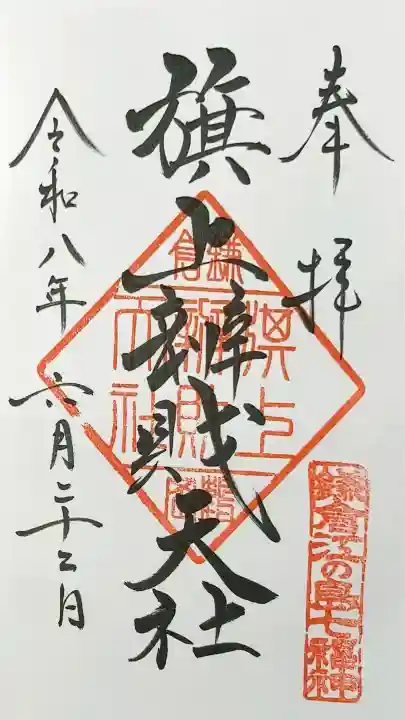 奉拝
旗上辨財天社
令和八年六月二十二日
鎌倉
旗上
辨財
天社
鎌倉江の島七福神